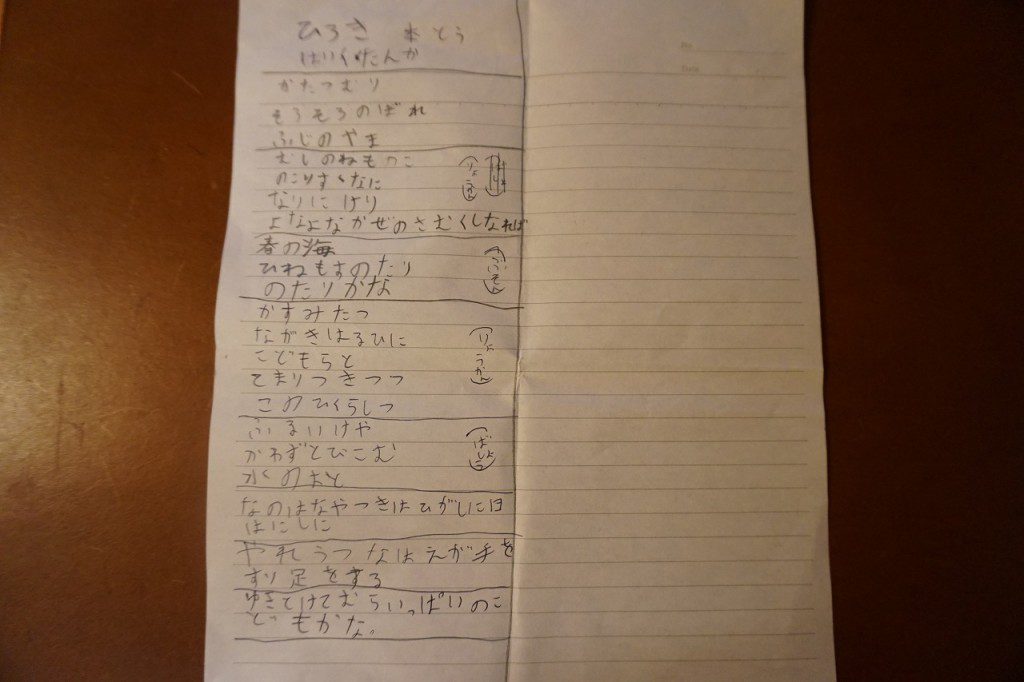 ひろき 本とう
はいくたんか
かたつむり
そろそろのばれ
ふじのやま
むしのねもつこ
のこりすくなに
なりにけり
よなよなかぜのさむくしなれば
(りょうかん)
春の海
ひねもすのたり
のたりかな
(ぶそん)
かすみたつ
ながきはるひに
こどもらと
てまりつきつつ
このひくらしつ
(りょうかん)
ふるいけや
かわずとびこむ
水のおと
(ばしょう)
なのはなやつきはひがしに日
はにしに
やれうつなはえが手を
すり足をする
ゆきとけてむらいっぱいのこ
どもかな。